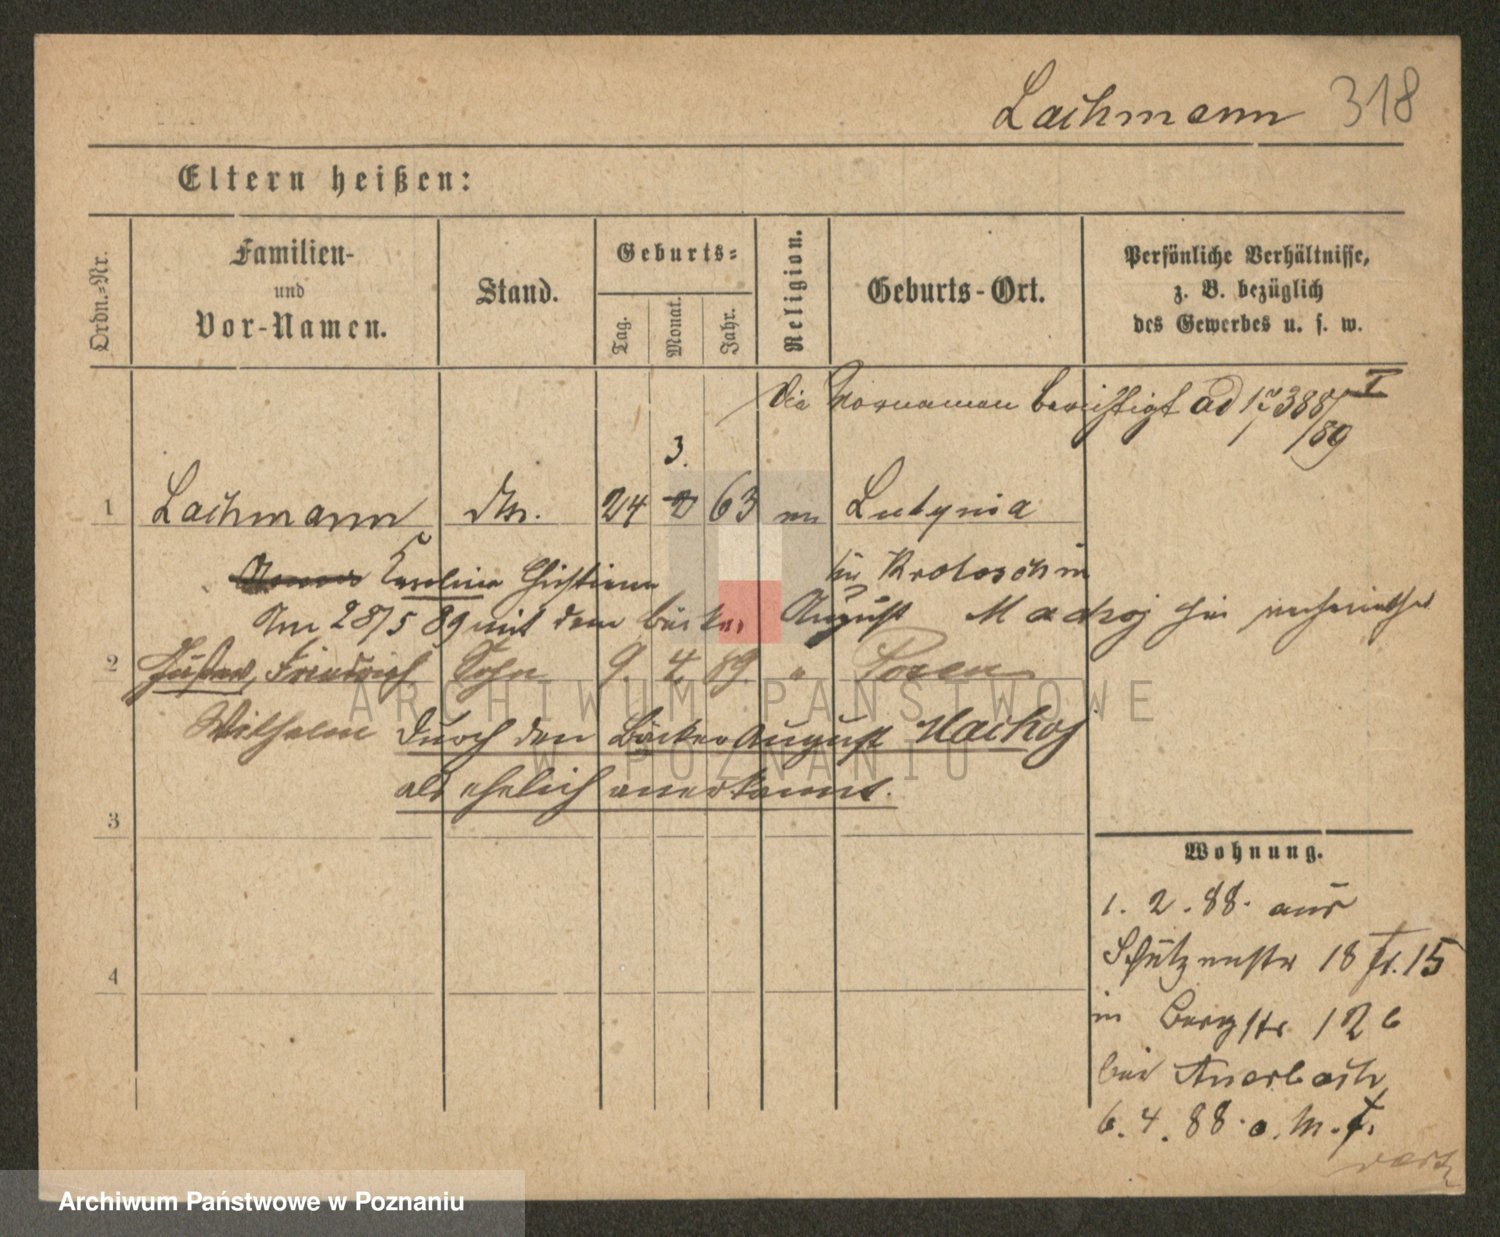 Lachmann 318
Eltern heißen:
Ordn.=Nr.
Familien-
und
Vor-Namen.
Stand.
Geburts=
Tag.
Monat.
Jahr.
Religion.
Geburts-Ort.
Persönliche Verhältnisse,
z. B. bezüglich
des Gewerbes u. s. w.
Die Vornamen berichtigt ad 388 I
/89
3.
1 Lachmann 24 2 63 Lutynia
Karolina Christiana Krotoschin
Am 28/5 89 mit dem Bäcker August Machoj hier verheirathet
2 Gustav, Friedrich Sohn 9. 4. 89. " Posen
Wilhelm durch den Bäcker August Machoj
als ehelich anerkannt.
3
Wohnung.
1. 2. 88. aus
Schützenstr 18 fr. 15
4
in Bergstr 12 b
bei Auerbach
6. 4. 88. o. M. f.
ARCHIWUM PAŃSTWOWE
W POZNANIU
Archiwum Państwowe w Poznaniu